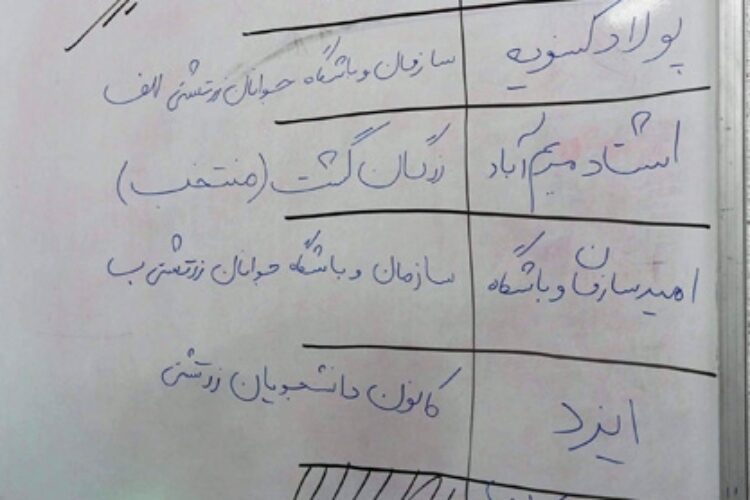 پولاد کسنویه
سازمان و باشگاه جوانان زرتشتی الف
اشتاد مریم آباد
نرگسان گشت (منتخب)
امید سازمان و باشگاه
سازمان و باشگاه جوانان زرتشتی ب
ایزد
کانون دانشجویان زرتشتی